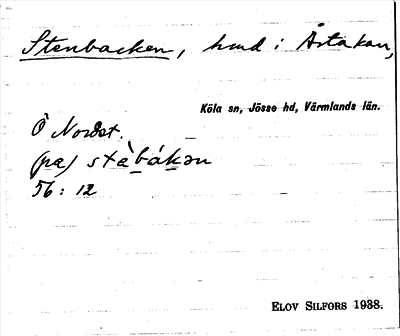 Stenbacken, hmd i Åstakan,
Köla sn, Jösse hd, Värmlands län.
Ö Nordst.
(pa) stàbákən
56: 12
ELOV SILFORS 1938.